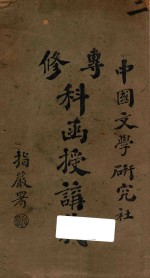 中國文學研究社
專修科函授講義
指嚴署
二